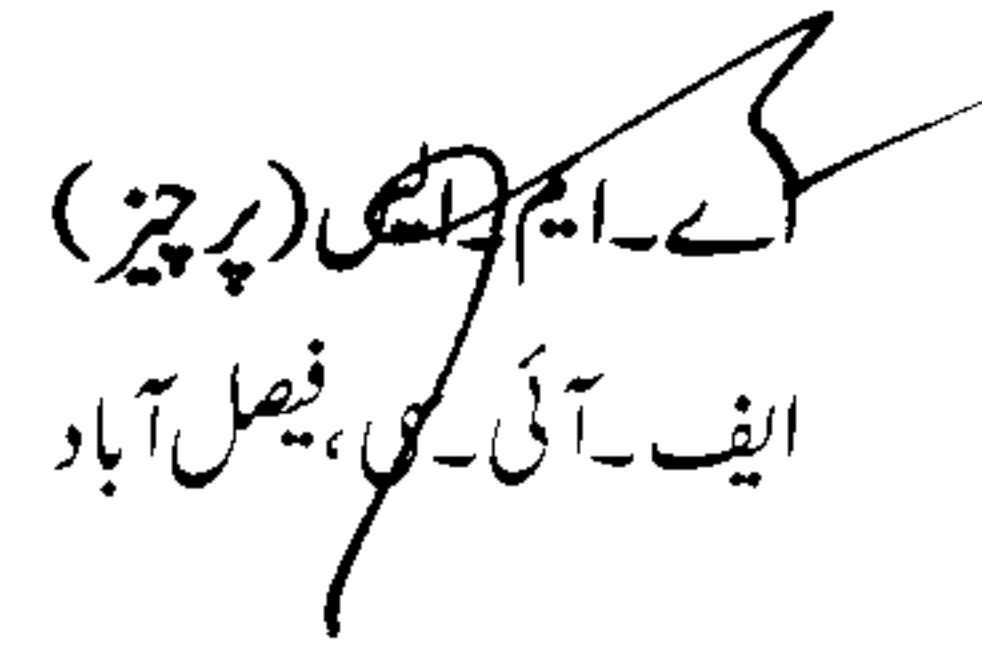 اے۔ایم۔ایس (پرچیز)
ایف۔آئی۔سی، فیصل آباد